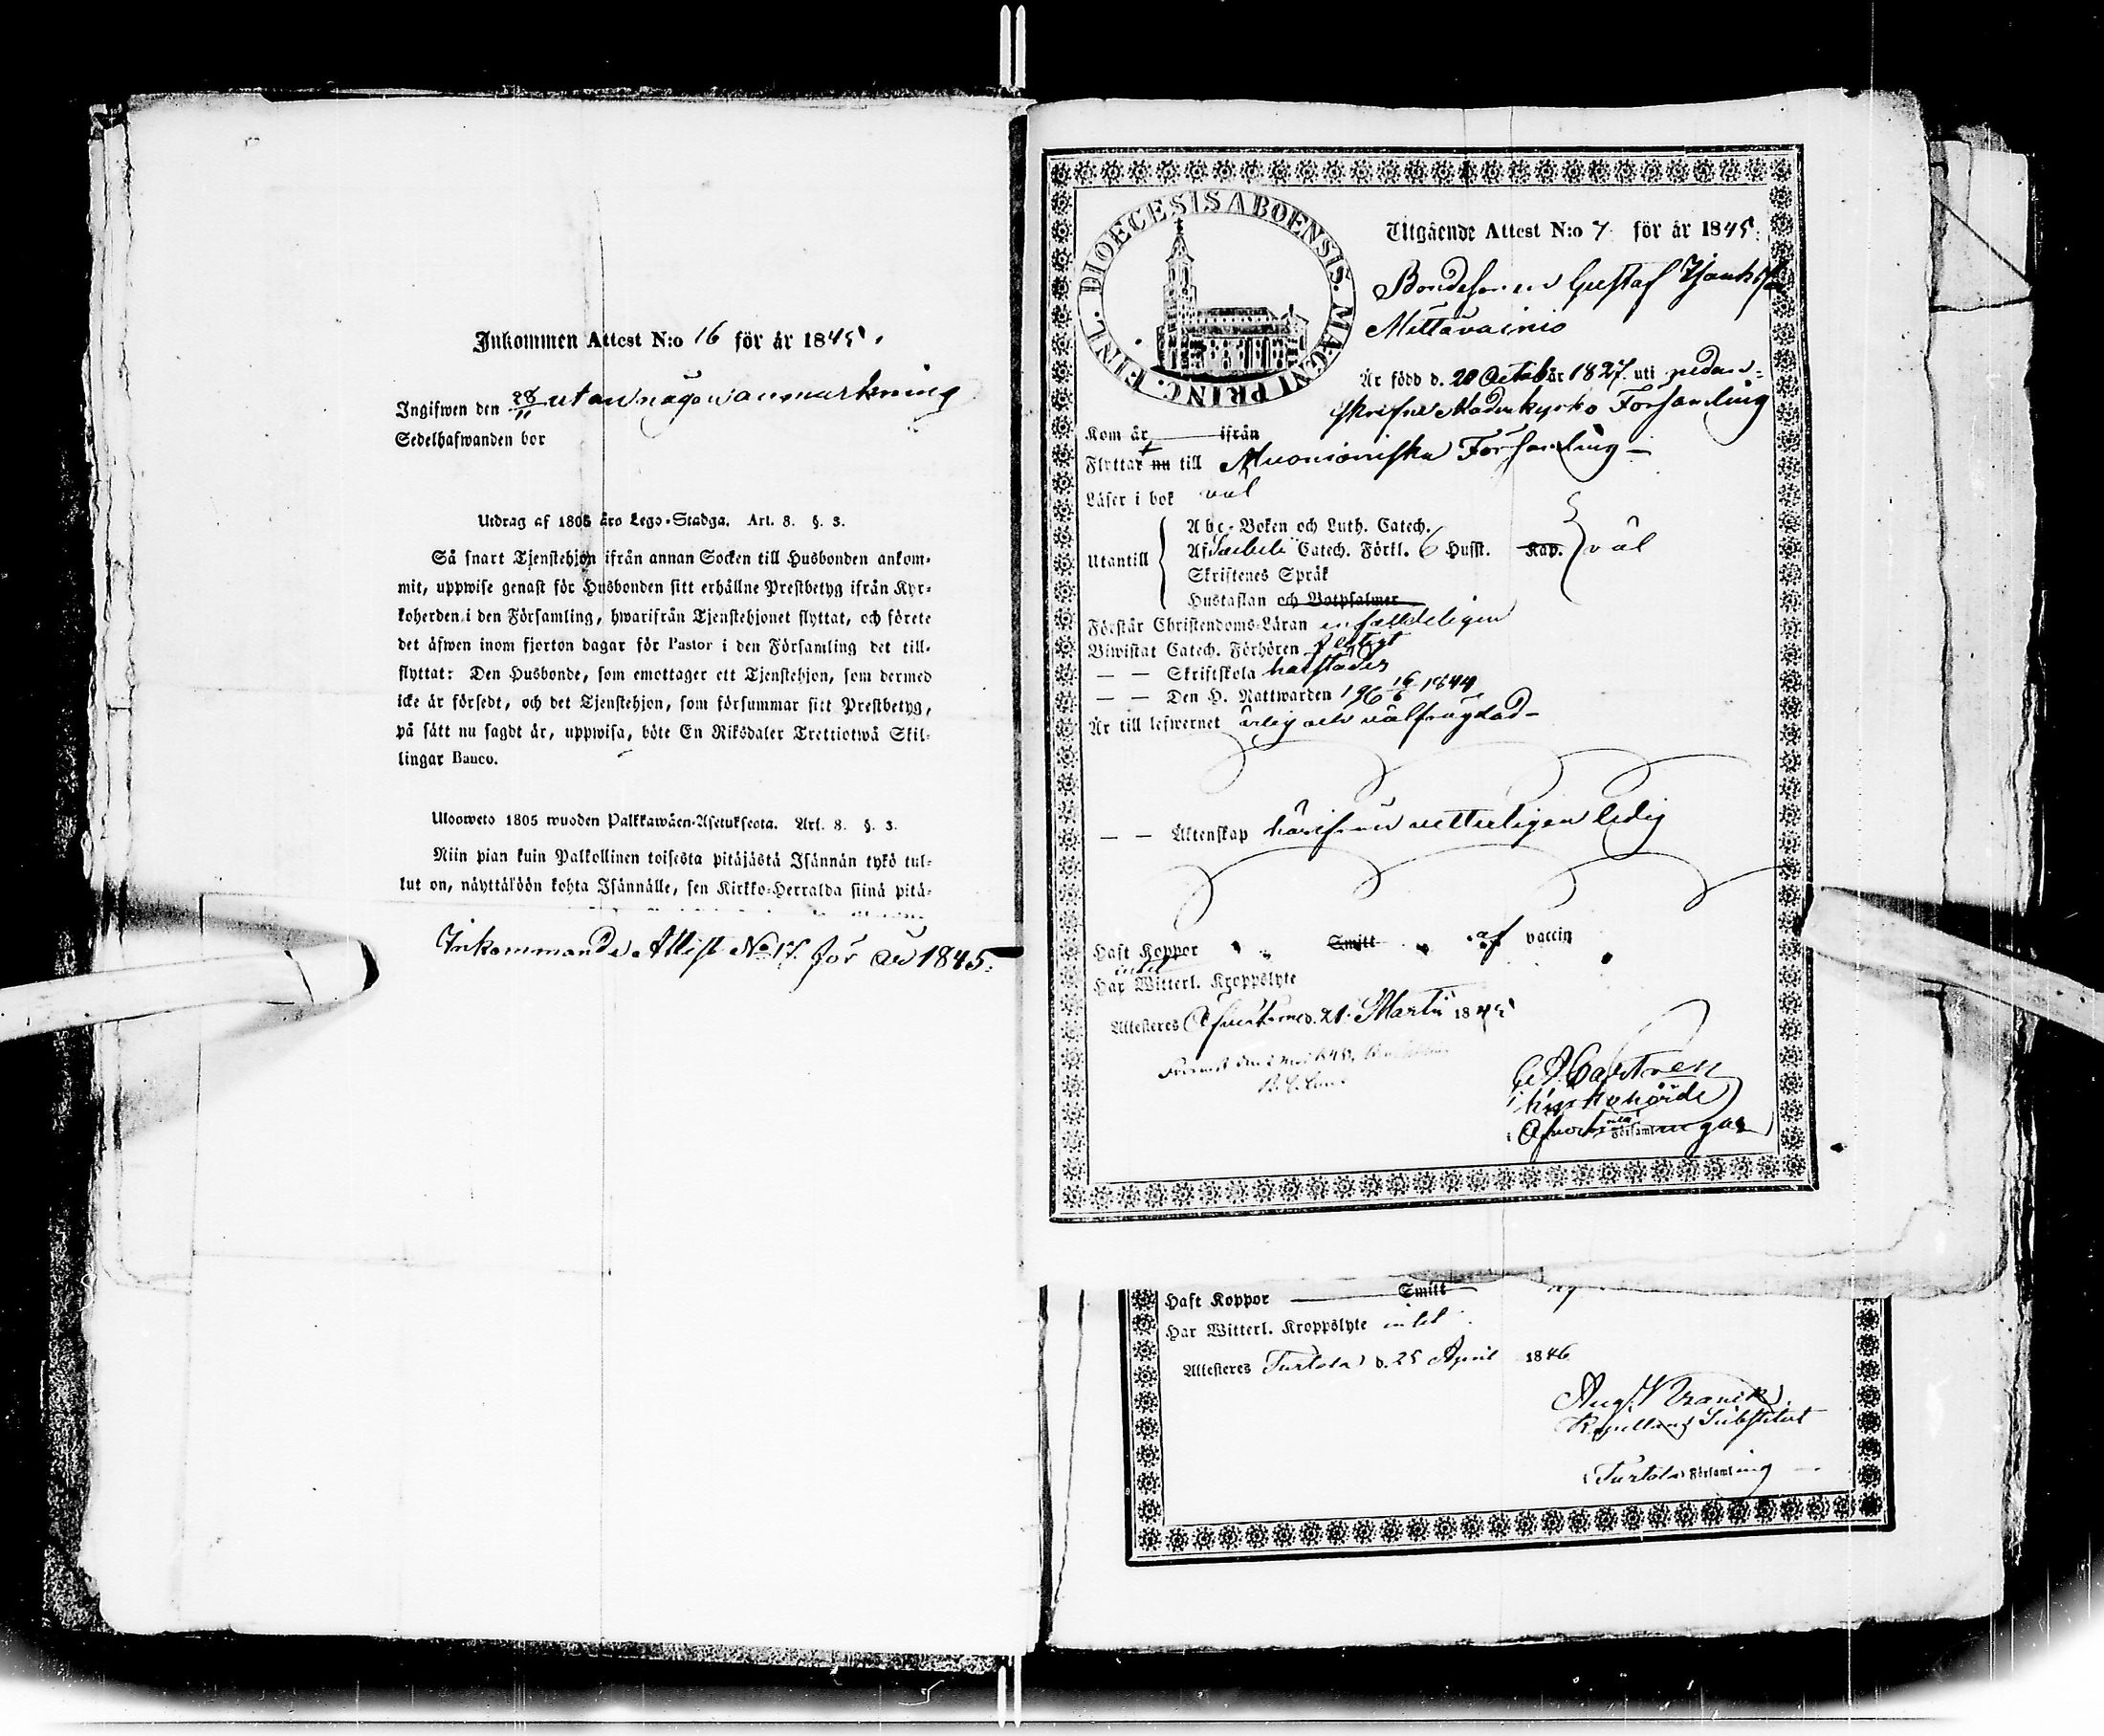 Inkommen Attest N:o 16 för år 1845.
Ingifwen den 28/11 utan någon anmärkning
Sedelhafwanden bor
Utdrag af 1805 års Lego-Stadga. Art. 8. §. 3.
Så snart Tjenstehjon ifrån annan Socken till Husbonden ankom-
mit, uppwise genast för Husbonden sitt erhållne Prestbetyg ifrån Kyr-
koherden i den Församling, hwarifrån Tjenstehjonet flyttat, och förete
det äfwen inom fjorton dagar för Pastor i den Församling det till-
flyttat: Den Husbonde, som emottager ett Tjenstehjon, som dermed
icke är försedt, och det Tjenstehjon, som försummar sitt Prestbetyg,
på sätt nu sagdt är, uppwisa, böte En Riksdaler Trettiotwå Skil-
lingar Banco.
Uloosweto 1805 wuoden Palkkawäen-Asetuksesta. Art. 8. §. 3.
Niin pian kuin Palkollinen toisesta pitäjästä Isännän tykö tul-
lut on, näyttäköön kohta Isännälle, sen Kirkko-Herralda siinä pitä-
Inkommande Attest No 17. för år 1845.
DIOECESIS ABOENSIS. MAGNI PRINC. FINL.
Utgående Attest N:o 7. för år 1845.
Bondesonen Gustaf
Mettävainio
Är född d. 20 October 1827. uti nedan-
skrifne Moderkyrko Församling
Kom år ifrån
Flyttar nu till Muonioniska Församling
Läser i bok väl
Utantill
Abc-Boken och Luth. Catech.
Af Catech. Förkl. 6 Hufst. Kap. väl
Skriftenes Språk
Hustaflan och Botpsalmer
Förstår Christendoms-Läran enfaldeligen
Biwistat Catech. Förhören flitigt
— — Skriftskola
— — Den H. Nattwarden 16/6 1844
Är till lefwernet ärlig och välfrägdad
— — Äktenskap härifrån vetterligen ledig
Haft Koppor Smitt af vaccin
Har Witterl. Kroppslyte intet
Attesteres d. 21. Martii 1845
Castrén
Kyrkoherde
Församlingar
Haft Koppor Smitt af
Har Witterl. Kroppslyte intet
Attesteres Turtola d. 25 April 1846
Aug.
Kapellans Substitut
i Turtola Församling